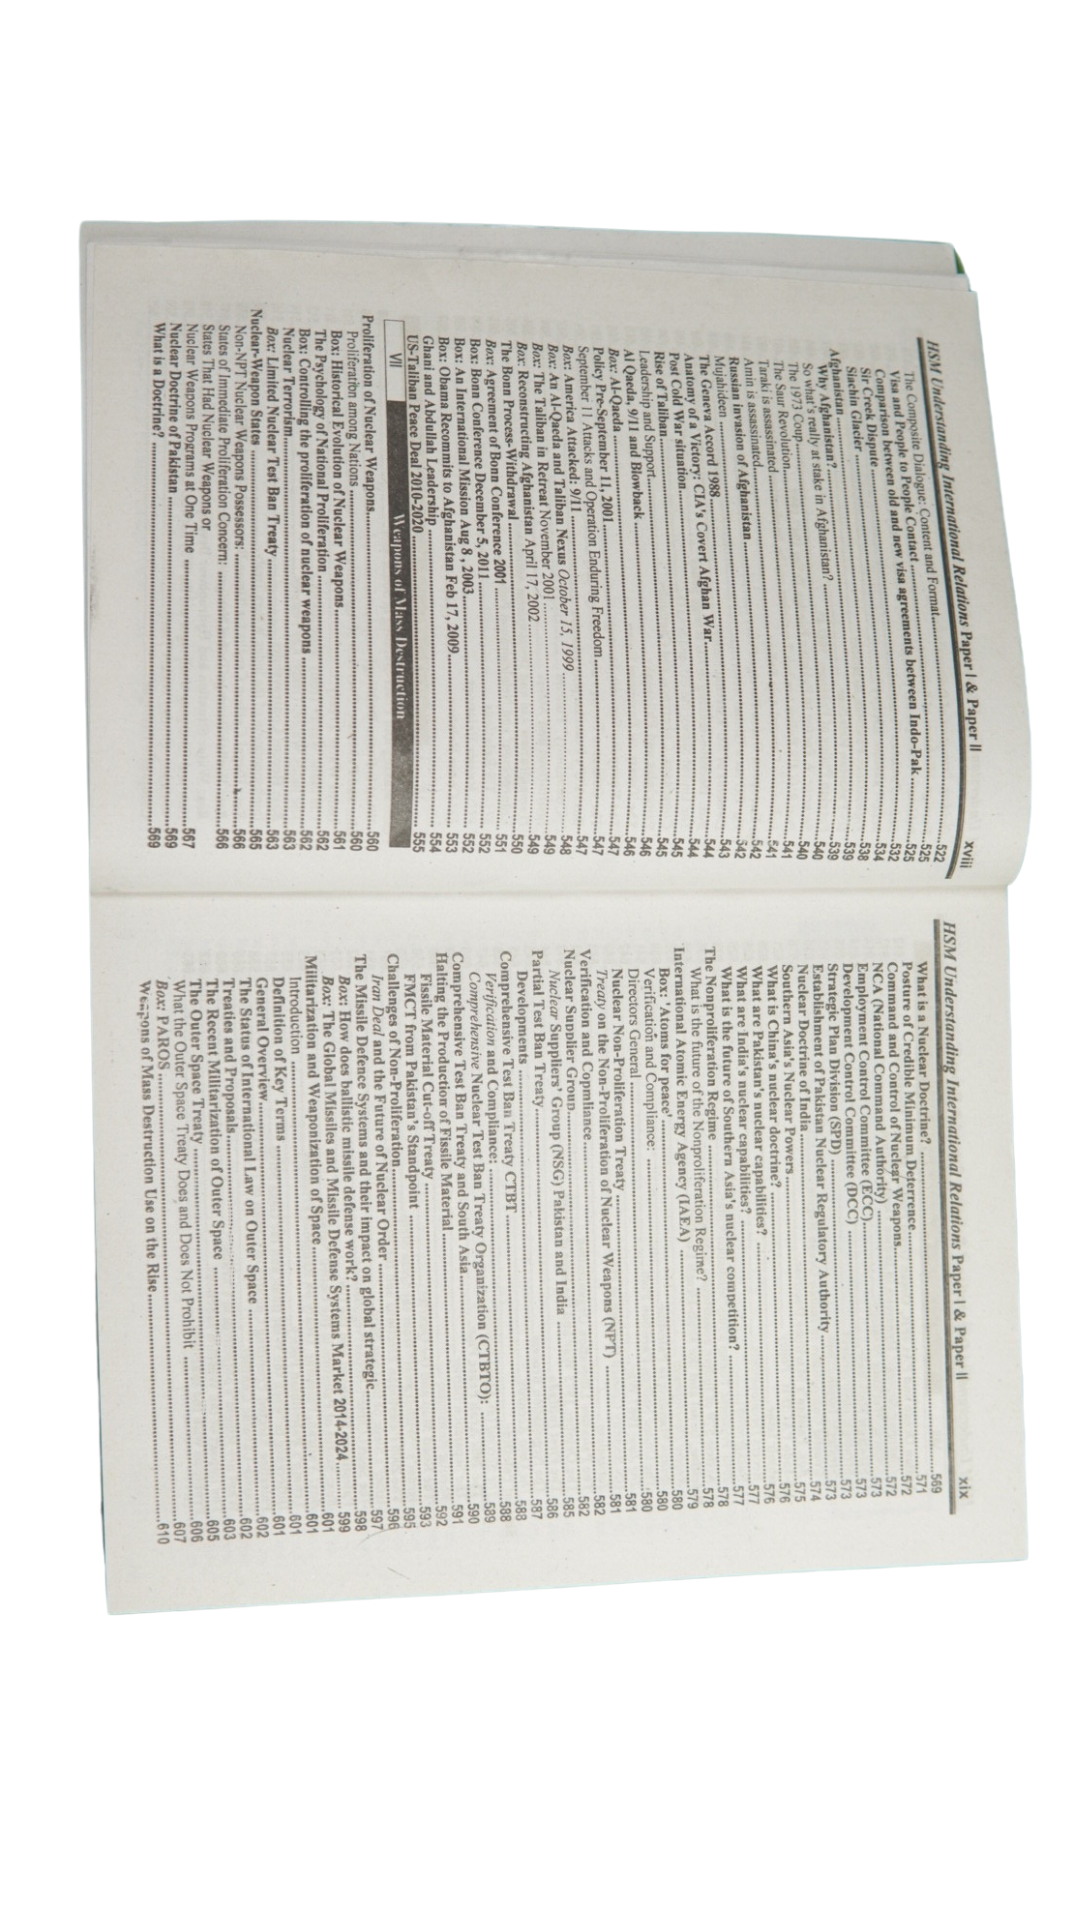 HSM Understanding International Relations Paper I & Paper II xviii
The Composite Dialogue: Content and Format.....522
Visa and People to People Contact.....525
Comparison between old and new visa agreements between Indo-Pak.....525
Sir Creek Dispute.....532
Siachin Glacier.....534
.....538
Afghanistan.....539
Why Afghanistan?.....539
So what's really at stake in Afghanistan?.....540
The 1973 Coup.....540
The Saur Revolution.....541
Taraki is assassinated.....541
Amin is assassinated.....542
Russian invasion of Afghanistan.....542
Mujahideen.....543
The Geneva Accord 1988.....544
Anatomy of a Victory: CIA's Covert Afghan War.....544
Post Cold War situation.....545
Rise of Taliban.....545
Leadership and Support.....546
Al Qaeda, 9/11 and Blowback.....546
Box: Al-Qaeda.....547
Policy Pre-September 11, 2001.....547
September 11 Attacks and Operation Enduring Freedom.....547
Box: America Attacked: 9/11.....548
Box: An Al-Qaeda and Taliban Nexus October 15, 1999.....549
Box: The Taliban in Retreat November 2001.....549
Box: Reconstructing Afghanistan April 17, 2002.....550
The Bonn Process-Withdrawal.....551
Box: Agreement of Bonn Conference 2001.....552
Box: Bonn Conference December 5, 2011.....552
Box: An International Mission Aug 8, 2003.....553
Box: Obama Recommits to Afghanistan Feb 17, 2009.....554
Ghani and Abdullah Leadership.....554
US-Taliban Peace Deal 2010-2020.....555
VII Weapons of Mass Destruction
Proliferation of Nuclear Weapons.....560
Proliferation among Nations.....560
Box: Historical Evolution of Nuclear Weapons.....561
The Psychology of National Proliferation.....562
Box: Controlling the proliferation of nuclear weapons.....562
Nuclear Terrorism.....563
Box: Limited Nuclear Test Ban Treaty.....563
Nuclear-Weapon States.....565
Non-NPT Nuclear Weapons Possessors:.....566
States of Immediate Proliferation Concern:.....566
States That Had Nuclear Weapons or
Nuclear Weapons Programs at One Time.....567
Nuclear Doctrine of Pakistan.....569
What is a Doctrine?.....569
HSM Understanding International Relations Paper I & Paper II xix
What is a Nuclear Doctrine?.....569
Posture of Credible Minimum Deterrence.....571
Command and Control of Nuclear Weapons.....572
NCA (National Command Authority).....572
Employment Control Committee (ECC).....573
Development Control Committee (DCC).....573
Strategic Plan Division (SPD).....573
Establishment of Pakistan Nuclear Regulatory Authority.....574
Nuclear Doctrine of India.....575
Southern Asia's Nuclear Powers.....576
What is China's nuclear doctrine?.....576
What are Pakistan's nuclear capabilities?.....577
What are India's nuclear capabilities?.....577
What is the future of Southern Asia's nuclear competition?.....578
The Nonproliferation Regime.....578
What is the future of the Nonproliferation Regime?.....579
International Atomic Energy Agency (IAEA).....580
Box: 'Atoms for peace'.....580
Verification and Compliance:.....580
Directors General.....581
Nuclear Non-Proliferation Treaty.....581
Treaty on the Non-Proliferation of Nuclear Weapons (NPT).....582
Verification and Copmliance.....582
Nuclear Supplier Group.....585
Nuclear Suppliers' Group (NSG) Pakistan and India.....586
Partial Test Ban Treaty.....587
Developments.....588
Comprehensive Test Ban Treaty CTBT.....588
Verification and Compliance:.....589
Comprehensive Nuclear Test Ban Treaty Organization (CTBTO):.....590
Comprehensive Test Ban Treaty and South Asia.....591
Halting the Production of Fissile Material.....592
Fissile Material Cut-off Treaty.....593
FMCT from Pakistan's Standpoint.....595
Challenges of Non-Proliferation.....596
Iran Deal and the Future of Nuclear Order.....597
The Missile Defence Systems and their impact on global strategic.....598
Box: How does ballistic missile defense work?.....599
Box: The Global Missiles and Missile Defense Systems Market 2014-2024.....601
Militarization and Weaponization of Space.....601
Introduction.....601
Definition of Key Terms.....601
General Overview.....602
The Status of International Law on Outer Space.....602
Treaties and Proposals.....603
The Recent Militarization of Outer Space.....605
The Outer Space Treaty.....606
What the Outer Space Treaty Does and Does Not Prohibit.....607
Box: PAROS.....610
Weapons of Mass Destruction Use on the Rise.....